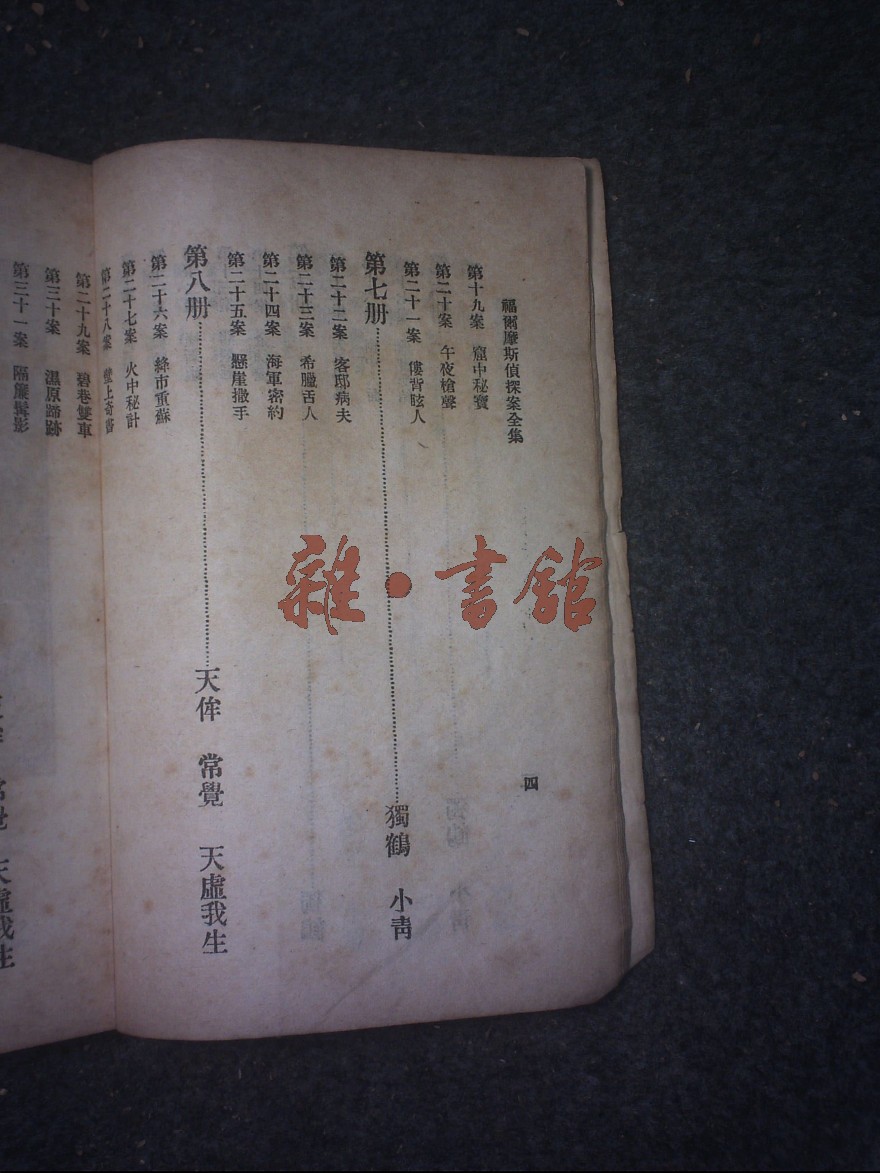 福爾摩斯偵探案全集
四
第十九案 窟中秘寶
第二十案 午夜槍聲
第二十一案 僂背眩人
第七册 獨鶴 小青
第二十二案 客邸病夫
第二十三案 希臘舌人
第二十四案 海軍密約
第二十五案 懸崖撒手
第八册 天侔 常覺 天虛我生
第二十六案 絳市重蘇
第二十七案 火中秘計
第二十八案 壁上奇書
第二十九案 碧巷雙車
第三十案 濕原蹄跡
第三十一案 隔簾髯影
天虛我生
雜·書館